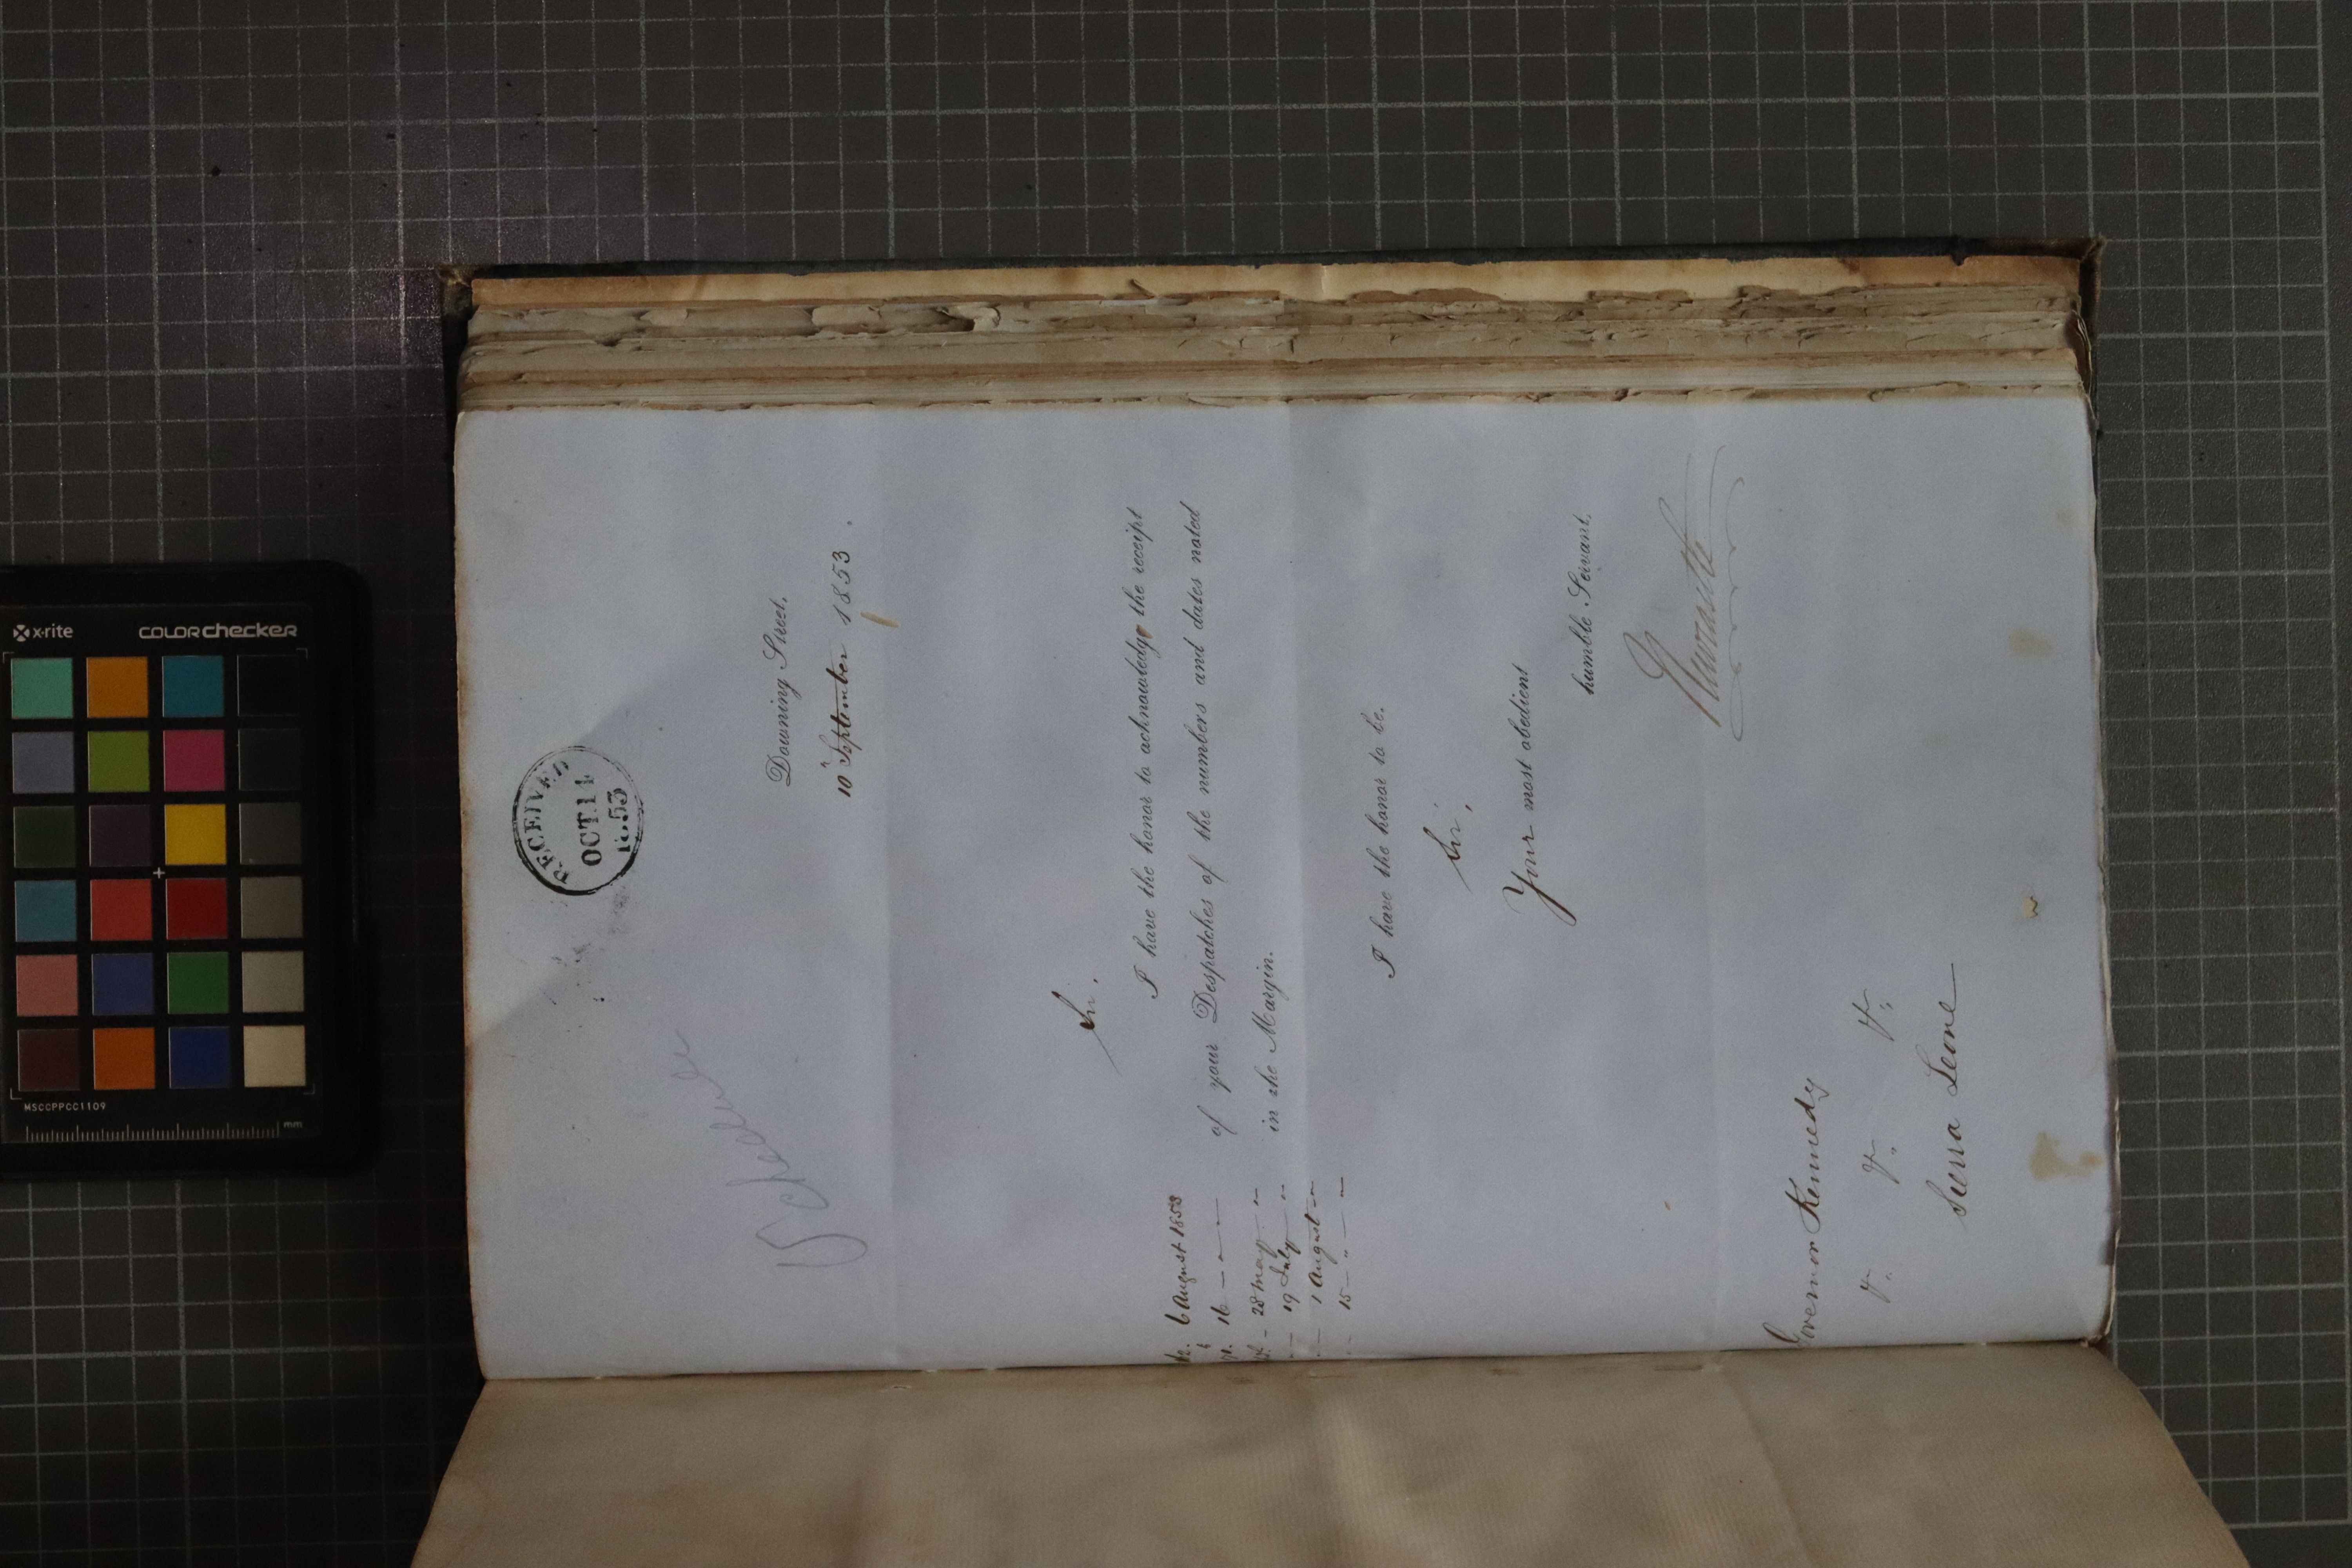 RECEIVED
OCT 14
1853
Schedule
Downing Street,
10 September 1853.
Sir,
I have the honor to acknowledge the receipt
of your Despatches of the numbers and dates noted
in the Margin.
6 August 1853
16 — " —
28 May — "
19 July — "
1 August — "
15 — " — "
I have the honor to be,
Sir,
Your most obedient
humble Servant,
Newcastle
Governor Kennedy
&c. &c. &c.
Sierra Leone
x-rite
colorchecker
MSCCPPCC1109
mm